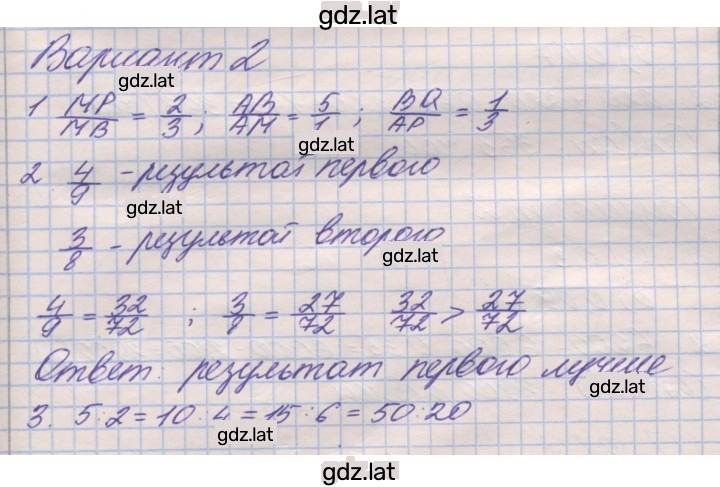 gdz.lat
Вариант 2
gdz.lat
1 MP/MB = 2/3 ; AB/AM = 5/1 ; BQ/AP = 1/3
gdz.lat
2 4/9 - результат первого
gdz.lat
3/8 - результат второго
gdz.lat
4/9 = 32/72 ; 3/8 = 27/72 32/72 > 27/72
gdz.lat
Ответ: результат первого лучше
gdz.lat
3. 5:2 = 10:4 = 15:6 = 50:20
gdz.lat
gdz.lat